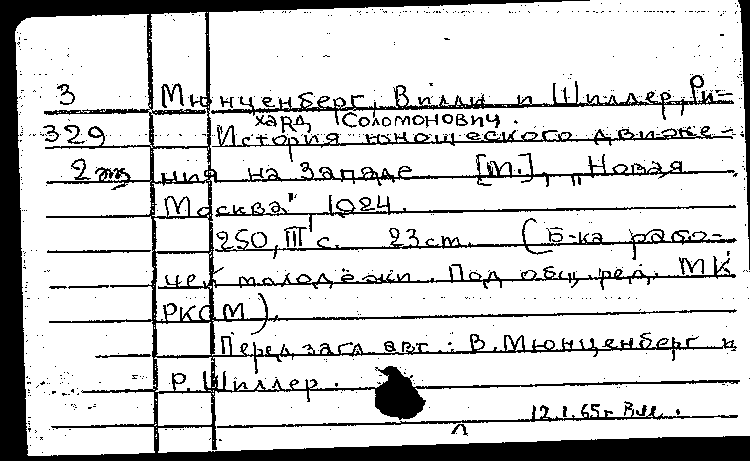 3 Мюнценберг, Вилли и Шиллер, Ри-
хард Соломонович.
329 История юношеского движе-
2 экз ния на Западе [М.], „Новая
Москва" 1924.
250, III с. 23 cm. (Б-ка рабо-
чей молодёжи. Под общ. ред. МК
РКСМ).
Перед загл. авт.: В. Мюнценберг и
Р. Шиллер.
12.1.65г. В.М.